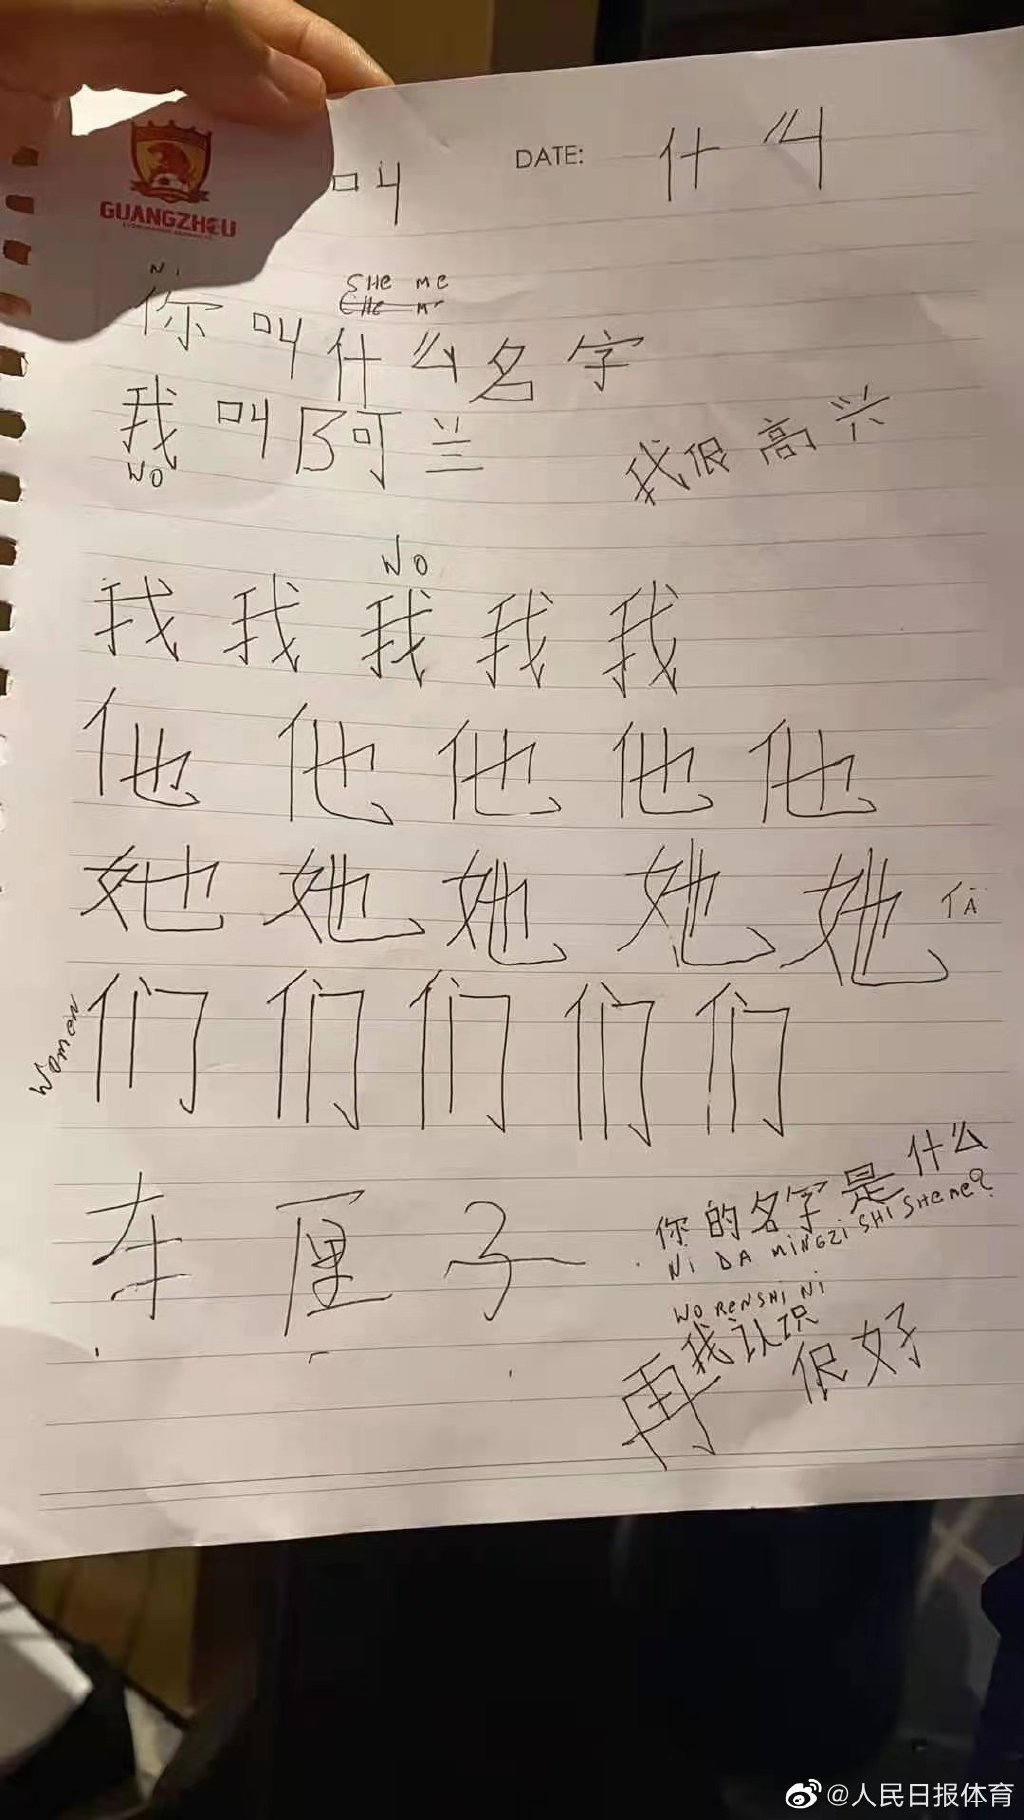 GUANGZHOU
叫 DATE: 什么
Ni SHe Me
CHe Me
你叫什么名字
我叫阿兰 我很高兴
WO
WO
我 我 我 我 我
他 他 他 他 他
她 她 她 她 她 TA
Women 们 们 们 们 们
车厘子
你的名字是什么
Ni DA MiNGZi SHI SHeMe?
WO ReNSHi Ni
我认识
很好
再
@人民日报体育